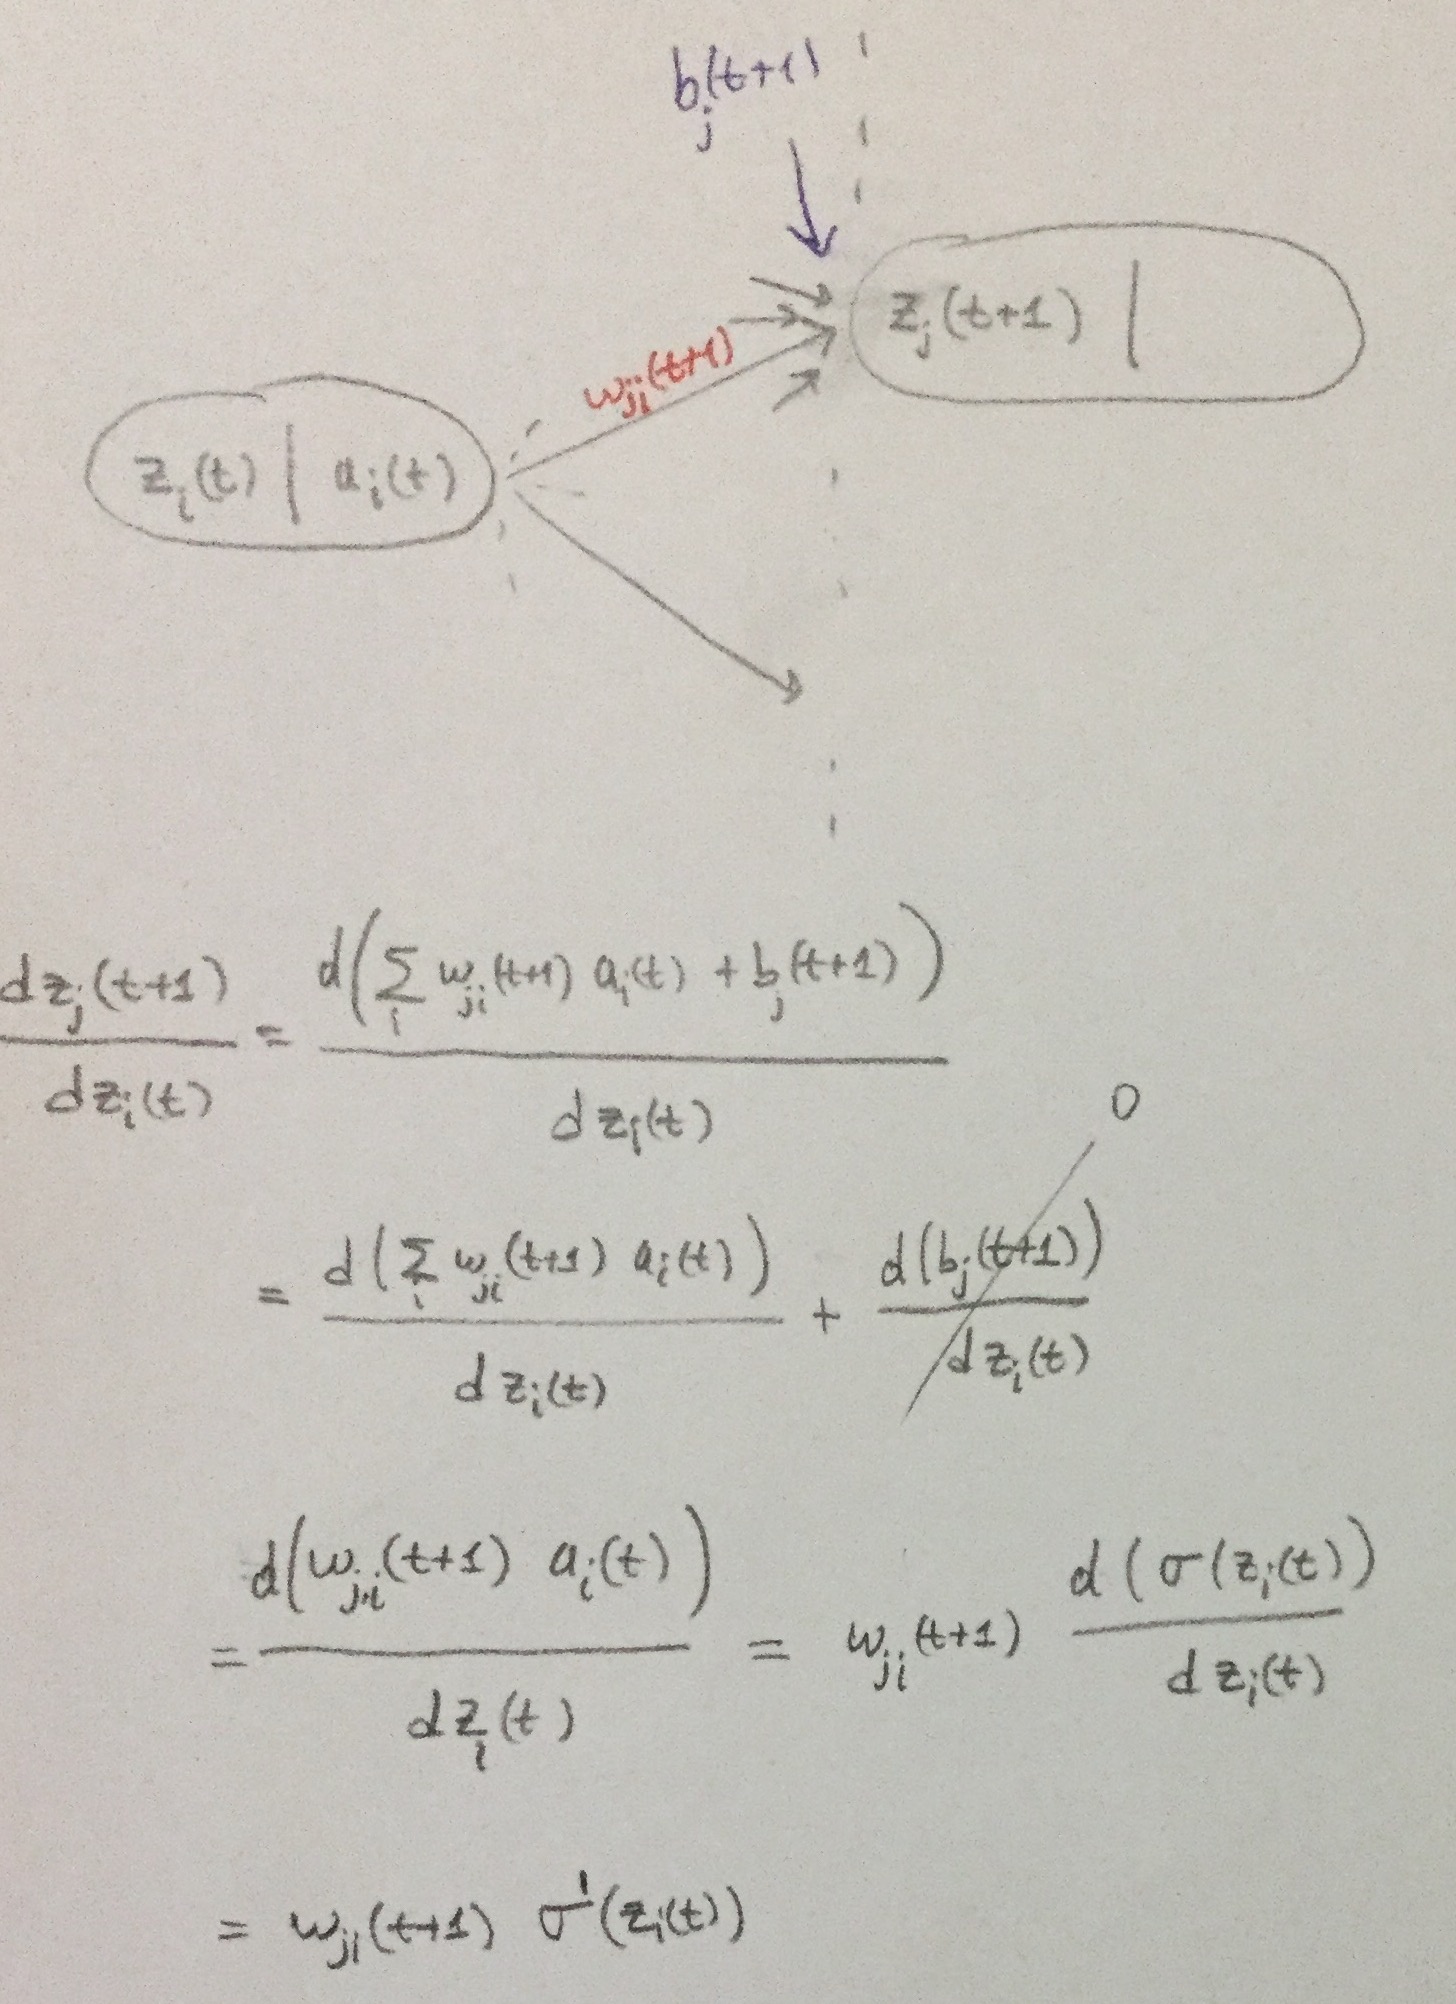 b_j(t+1)
z_j(t+1) |
w_ji(t+1)
z_i(t) | a_i(t)
dz_j(t+1) / dz_i(t) = d(∑_i w_ji(t+1) a_i(t) + b_j(t+1)) / dz_i(t)
= d(∑_i w_ji(t+1) a_i(t)) / dz_i(t) + d(b_j(t+1)) / dz_i(t) 0
= d(w_ji(t+1) a_i(t)) / dz_i(t) = w_ji(t+1) d(σ(z_i(t)) / dz_i(t)
= w_ji(t+1) σ'(z_i(t))